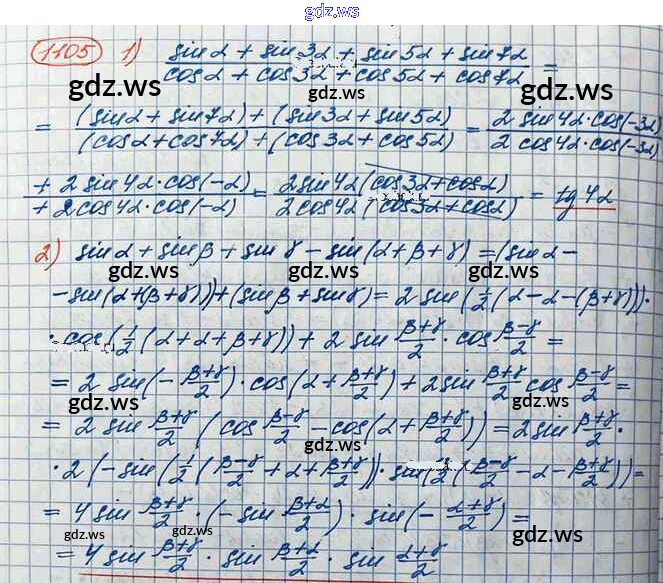 gdz.ws
1105 1) sin α + sin 3α + sin 5α + sin 7α / cos α + cos 3α + cos 5α + cos 7α =
gdz.ws gdz.ws
= (sin α + sin 7α) + (sin 3α + sin 5α) / (cos α + cos 7α) + (cos 3α + cos 5α) = 2 sin 4α · cos(-3α) / 2 cos 4α · cos(-3α)
gdz.ws gdz.ws
+ 2 sin 4α · cos(-α) / + 2 cos 4α · cos(-α) = 2 sin 4α (cos 3α + cos α) / 2 cos 4α (cos 3α + cos α) = tg 4α
gdz.ws
2) sin α + sin β + sin γ - sin(α + β + γ) = (sin α -
gdz.ws gdz.ws
- sin(α + (β + γ))) + (sin β + sin γ) = 2 sin (1/2 (α - α - (β + γ))) ·
· cos (1/2 (α + α + β + γ)) + 2 sin β+γ/2 · cos β-γ/2 =
gdz.ws
= 2 sin (- β+γ/2) · cos (α + β+γ/2) + 2 sin β+γ/2 cos β-γ/2 =
gdz.ws gdz.ws
= 2 sin β+γ/2 (cos β-γ/2 - cos (α + β+γ/2)) = 2 sin β+γ/2 ·
gdz.ws
· 2 (- sin (1/2 (β-γ/2 + α + β+γ/2)) · sin (1/2 (β-γ/2 - α - β+γ/2)) =
gdz.ws
= 4 sin β+γ/2 · (- sin β+α/2) · sin (- α+γ/2) =
gdz.ws gdz.ws
= 4 sin β+γ/2 · sin β+α/2 · sin α+γ/2
gdz.ws